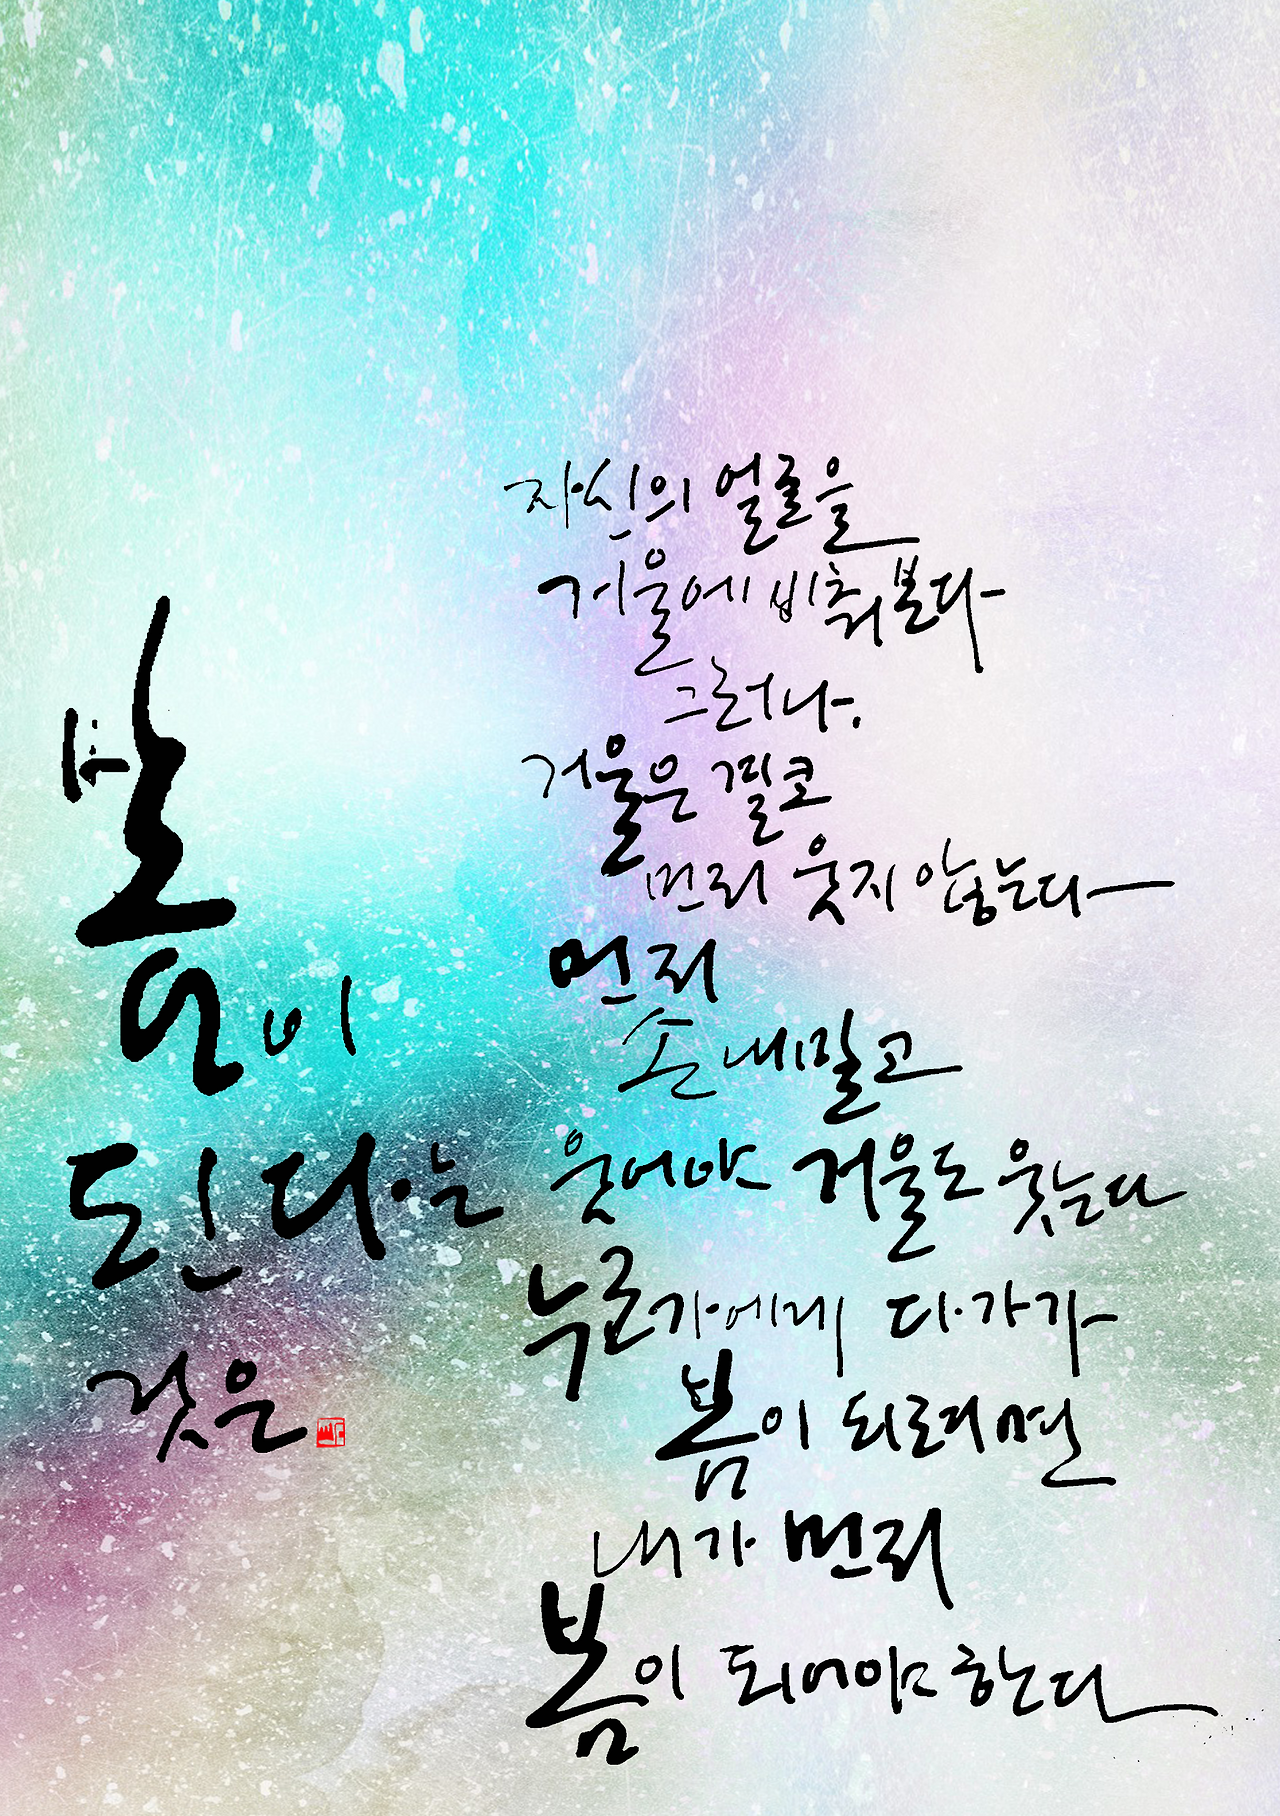 봄이
된다는
것은
자신의 얼굴을
거울에 비춰본다
그러나.
거울은 결코
먼저 웃지 않는다
먼저
손 내밀고
웃어야 거울도 웃는다
누군가에게 다가가
봄이 되려면
내가 먼저
봄이 되어야 한다